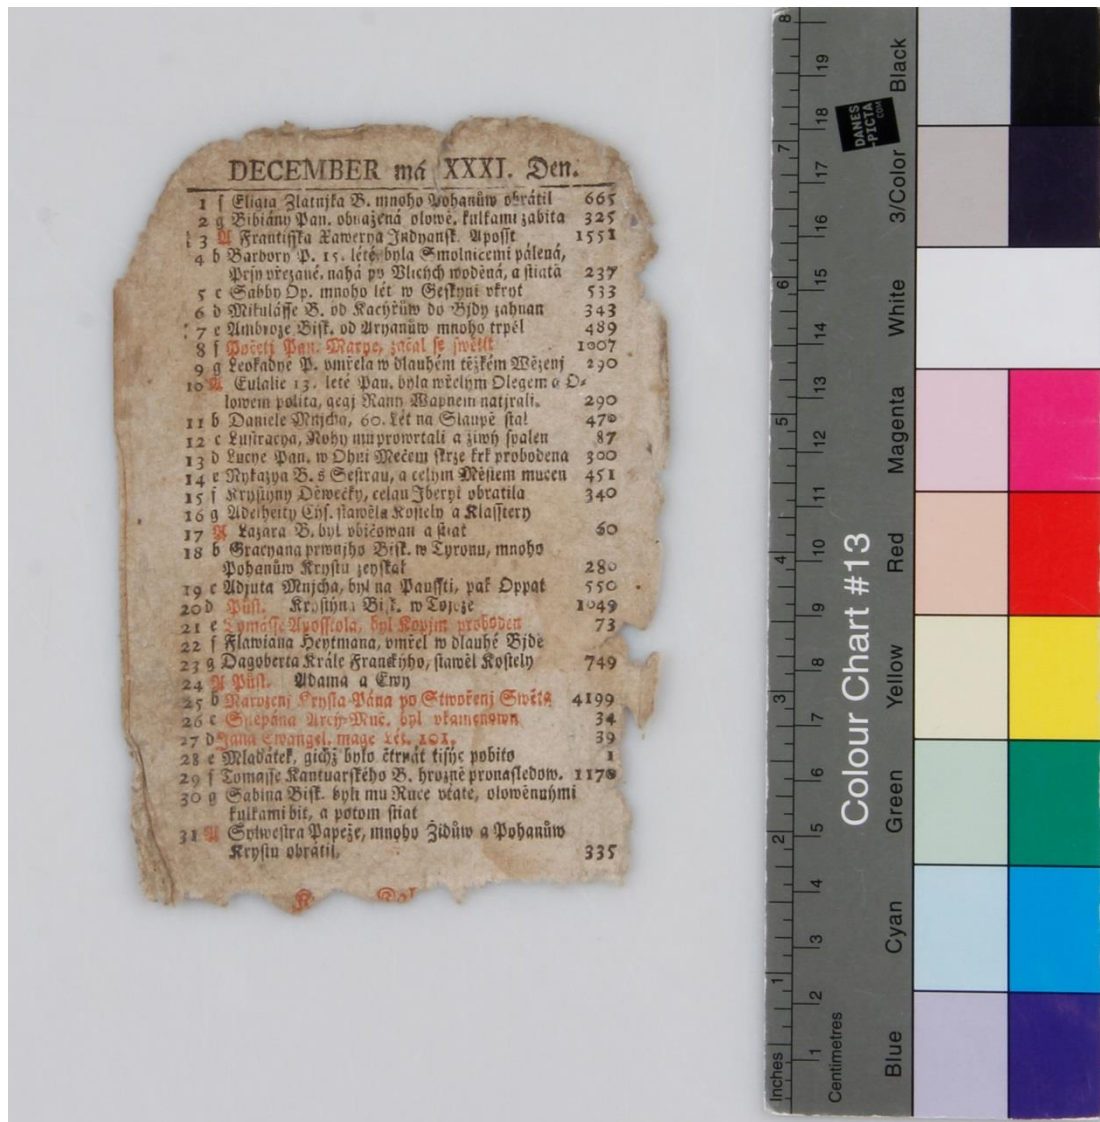 DECEMBER má XXXI. Den.
1 f Eligia Zlatnjka B. mnoho Pohanůw obrátil 665
2 g Bibiány Pan. obnažená olowě. kulkami zabita 325
3 A Frantisska Xawerya Jndyansk. Aposst 1551
4 b Barbory P. 15. létě, byla Smolnicemi pálená,
Prsy vřezané, nahá po Vlicých woděná, a stiatá 237
5 c Sabby Op. mnoho lét w Geskyni vkryt 533
6 d Mikulásse B. od Kacýřůw do Bjdy zahnan 343
7 e Ambrože Bisk. od Aryanůw mnoho trpěl 489
8 f Početj Pan. Marye, začal se swětit 1007
9 g Leokadye P. vmřela w dlauhém těžkém Wězenj 290
10 A Eulalie 13. letě Pan. byla wřelým Olegem a O-
lowem polita, gegj Rany Wapnem natjrali. 290
11 b Daniele Mnjcha, 60. Lét na Slaupě stal 470
12 c Lustracya, Nohy mu prowrtali a žiwý spalen 87
13 d Lucye Pan. w Ohni Mečem skrze krk probodena 300
14 e Nykazya B. s Sestrau, a celým Městem mucen 451
15 f Krystyny Děwečky, celau Jberyi obratila 340
16 g Adelheity Cýs. stawěla Kostely a Klásstery
17 A Lazara B. byl vbičowan a stiat 60
18 b Gracyana prwnjho Bisk. w Tyronu, mnoho
Pohanůw Krystu zeyskal 280
19 c Adjuta Mnjcha, byl na Paussti, pak Oppat 550
20 d Půst. Krystýna Bisk. w 1049
21 e Tomásse Aposstola, byl Kopjm proboden 73
22 f Flawiana Heytmana, vmřel w dlauhé Bjdě
23 g Dagoberta Krále Franckýho, stawěl Kostely 749
24 A Půst. Adama a Ewy
25 b Narozenj Krysta Pána po Stwořenj Swěta 4199
26 c Sstěpána Arcy-Muč. byl vkamenown 34
27 d Jana Ewangel. mage Lét. 101. 39
28 e Mladátek, gichž bylo čtrnát tisýc pobito 1
29 f Tomasse Kantuarského B. hrozně pronasledow. 1170
30 g Sabina Bisk. byli mu Ruce vťaté, olowěnnými
kulkami bit, a potom stiat
31 A Sylwestra Papeže, mnoho Židůw a Pohanůw
Krystu obrátil. 335
DANES
-PICTA
.COM
Colour Chart #13
Black
3/Color
White
Magenta
Red
Yellow
Green
Cyan
Blue
Inches 1 2 3 4 5 6 7 8
Centimetres 1 2 3 4 5 6 7 8 9 10 11 12 13 14 15 16 17 18 19